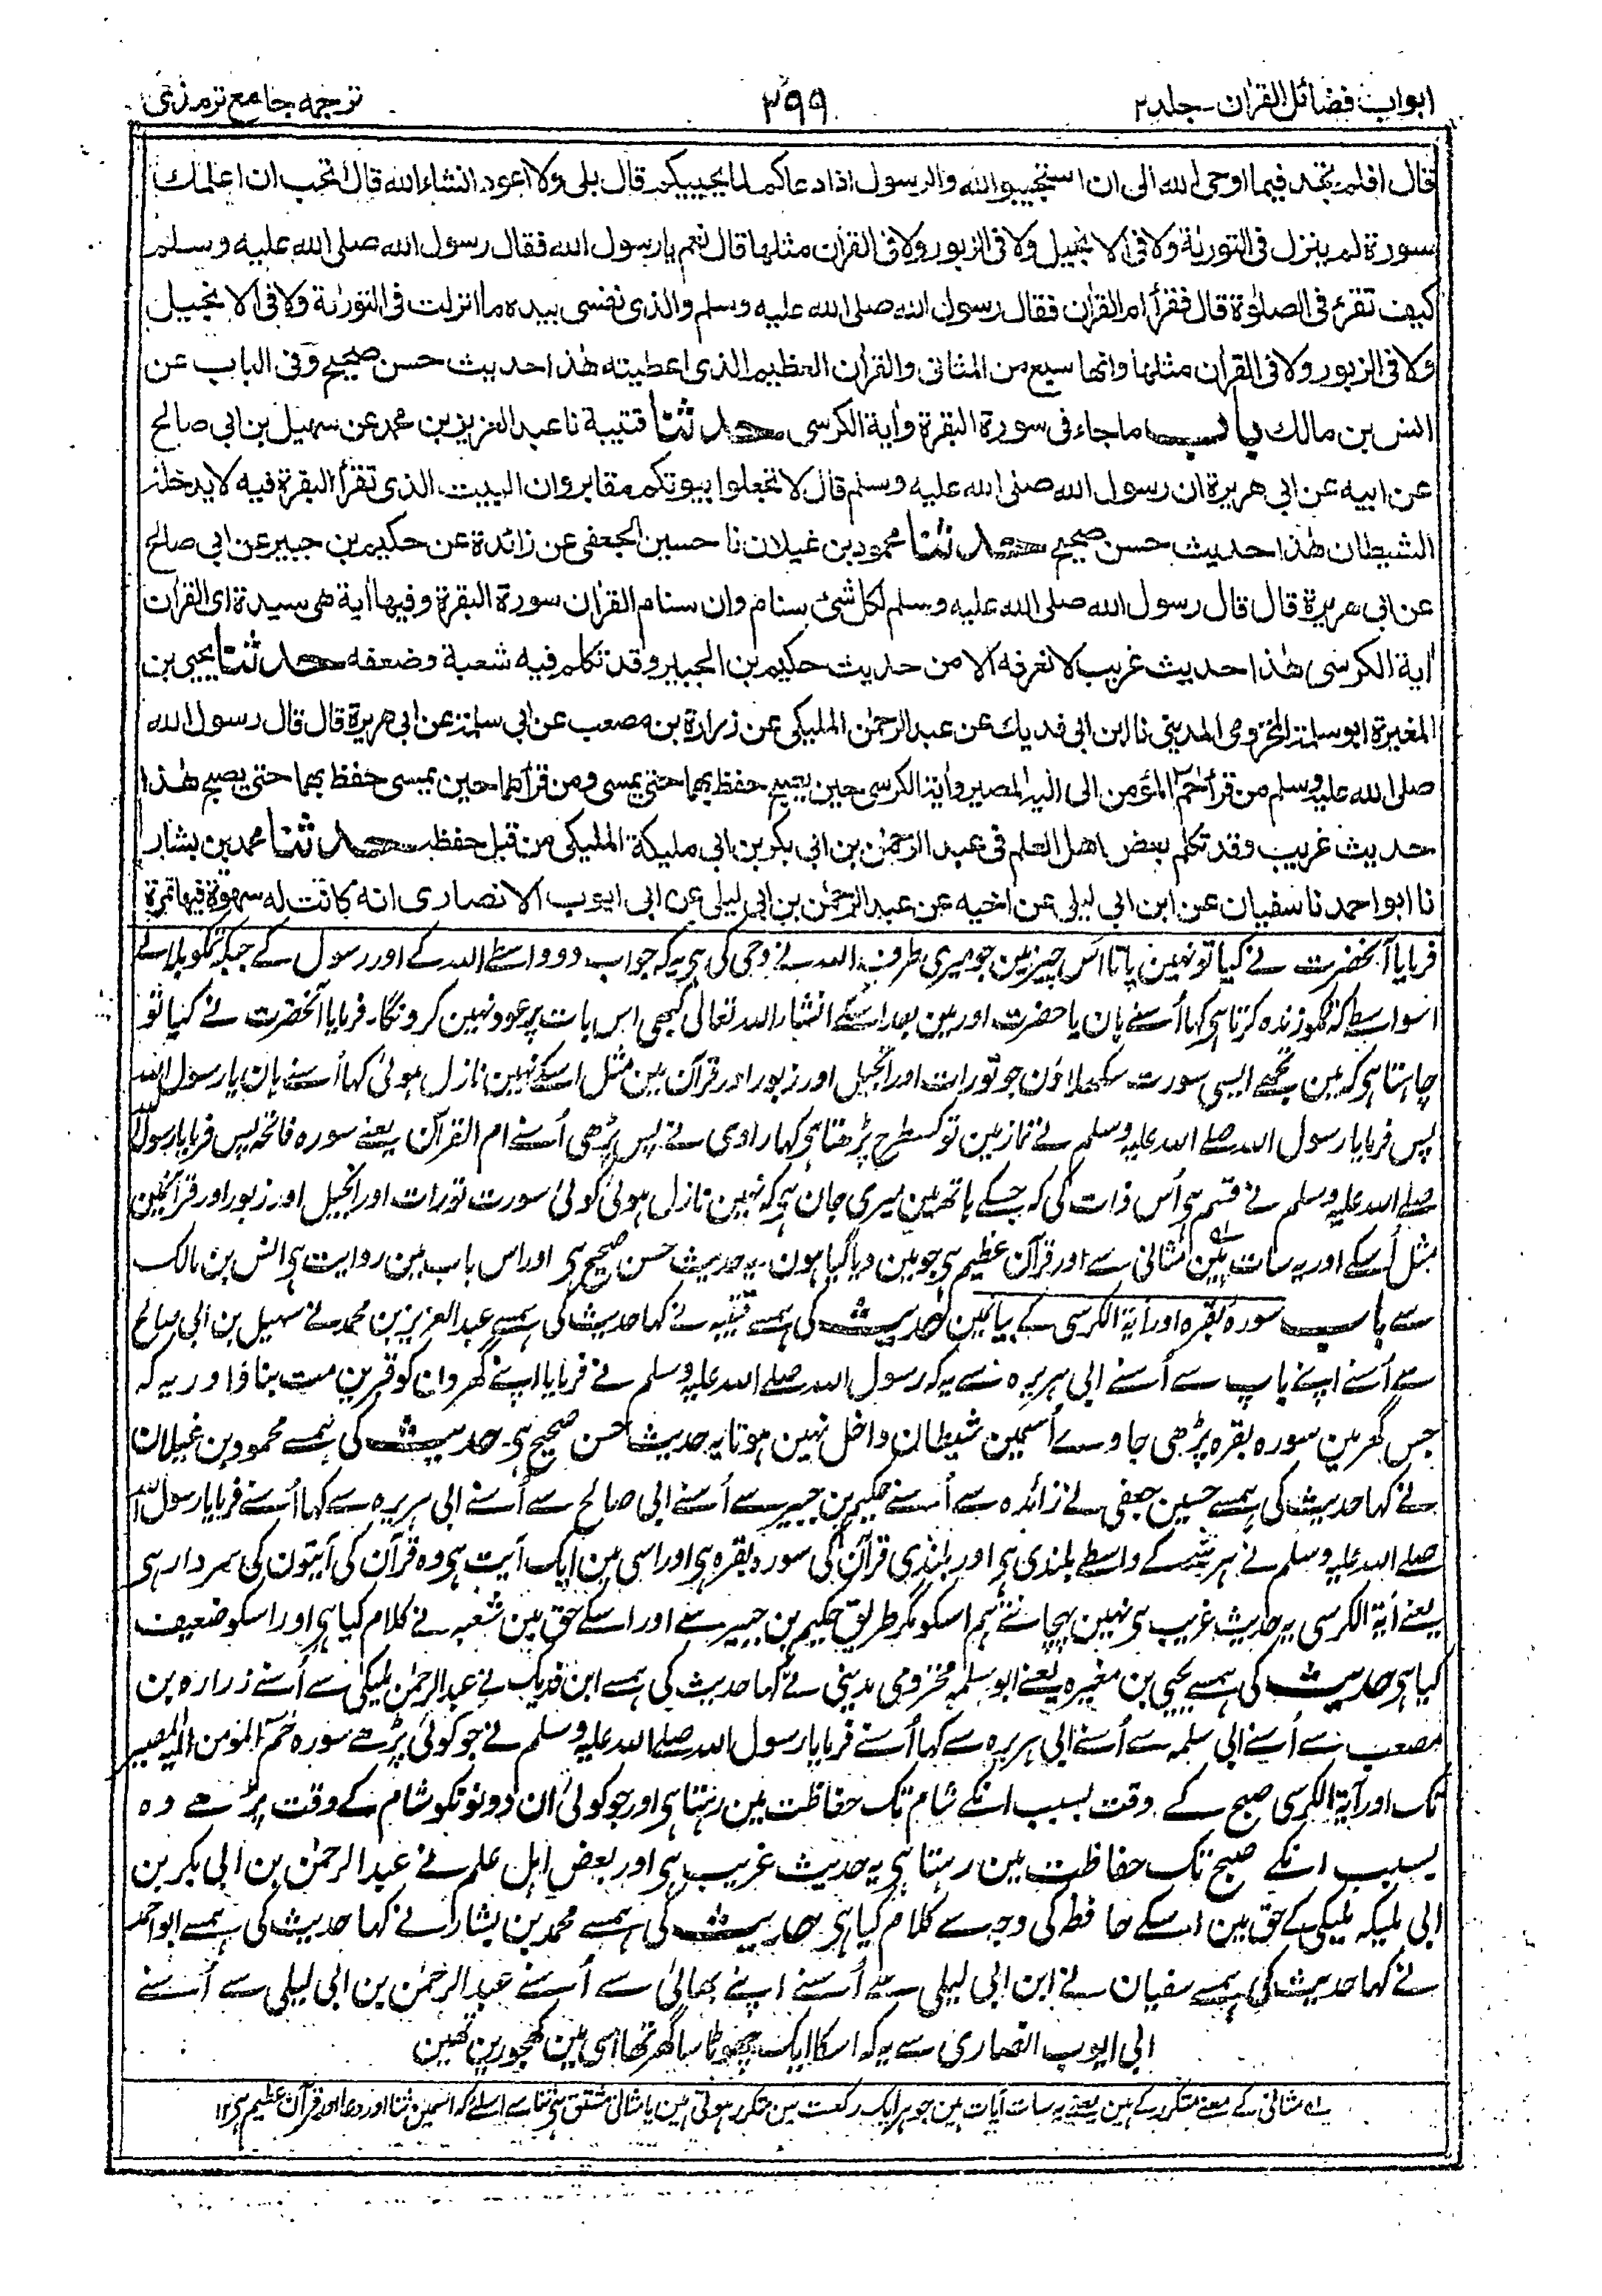 ابواب فضائل القرآن - جلد ۲
۳۹۹
ترجمہ جامع ترمذی
قال افلم تجد فيما اوحى الله الى ان استجيبوا لله والرسول اذا دعاكم لما يحييكم قال بلى ولا اعود انشاء الله قال اتحب ان اعلمك
سورة لم ينزل فى التورىة ولا فى الانجيل ولا فى الزبور ولا فى القرآن مثلها قال نعم يا رسول الله فقال رسول الله صلى الله عليه وسلم
كيف تقرئ فى الصلوة قال فقرأ ام القرآن فقال رسول الله صلى الله عليه وسلم والذى نفسى بيده ما انزلت فى التورىة ولا فى الانجيل
ولا فى الزبور ولا فى القرآن مثلها وانها سبع من المثانى والقرآن العظيم الذى اعطيته هذا حديث حسن صحيح وفى الباب عن
انس بن مالك باب ما جاء فى سورة البقرة وآية الكرسى حدثنا قتيبة نا عبد العزيز بن محمد عن سهيل بن ابى صالح
عن ابيه عن ابى هريرة ان رسول الله صلى الله عليه وسلم قال لا تجعلوا بيوتكم مقابر وان البيت الذى تقرأ البقرة فيه لا يدخله
الشيطان هذا حديث حسن صحيح حدثنا محمود بن غيلان نا حسين الجعفى عن زائدة عن حكيم بن جبير عن ابى صالح
عن ابى هريرة قال قال رسول الله صلى الله عليه وسلم لكل شئ سنام وان سنام القرآن سورة البقرة وفيها آية هى سيدة اى القرآن
آية الكرسى هذا حديث غريب لا نعرفه الا من حديث حكيم بن الجبير وقد تكلم فيه شعبة وضعفه حدثنا يحيى بن
المغيرة ابو سلمة المخزومى المدينى نا ابن ابى فديك عن عبد الرحمن المليكى عن زرارة بن مصعب عن ابى سلمة عن ابى هريرة قال قال رسول الله
صلى الله عليه وسلم من قرأ حٰم المؤمن الى اليه المصير وآية الكرسى حين يصبح حفظ بهما حتى يمسى ومن قرأهما حين يمسى حفظ بهما حتى يصبح هذا
حديث غريب وقد تكلم بعض اهل العلم فى عبد الرحمن بن ابى بكر بن ابى مليكة المليكى من قبل حفظه حدثنا محمد بن بشار
نا ابو احمد نا سفيان عن ابن ابى ليلى عن اخيه عن عبد الرحمن بن ابى ليلى عن ابى ايوب الانصارى انه كانت له سهوة فيها تمرة
فرمایا آنحضرت نے کیا تو نہین پاتا اُس چیز مین جو میری طرف اللہ نے وحی کی ہی یہ کہ جواب دو واسطے اللہ کے اور رسول کے جبکہ تمکو بلائے
اسواسطے کہ تمکو زندہ کرتا ہی کہا اُسنے ہان یا حضرت اور مین بعد اسکے انشاء اللہ تعالیٰ کبھی اس بات پر عود نہین کرونگا۔ فرمایا آنحضرت نے کیا تو
چاہتا ہی کہ مین تجھے ایسی سورت سکھلاؤن جو تورات اور انجیل اور زبور اور قرآن مین مثل اسکے نہین نازل ہوئی کہا اُسنے ہان یا رسول اللہ
پس فرمایا رسول اللہ صلے اللہ علیہ وسلم نے نماز مین تو کسطرح پڑھتا ہی کہا راوی نے پس پڑھی اُسنے ام القرآن یعنے سورہ فاتحہ پس فرمایا رسول اللہ
صلے اللہ علیہ وسلم نے قسم ہی اُس ذات کی کہ جسکے ہاتھ مین میری جان ہی کہ نہین نازل ہوئی کوئی سورت تورات اور انجیل اور زبور اور قرآنمین
مثل اُسکے اور یہ سات ہین مثانی سے اور قرآن عظیم ہی جو مین دیا گیا ہون۔ یہ حدیث حسن صحیح ہی اور اس باب مین روایت ہی انس بن مالک
سے باب سورہ بقرہ اور آیۃ الکرسی کے بیانمین حدیث کی ہمسے قتیبہ نے کہا حدیث کی ہمسے عبد العزیز بن محمد نے سہیل بن ابی صالح
سے اُسنے اپنے باپ سے اُسنے ابی ہریرہ سے یہ کہ رسول اللہ صلے اللہ علیہ وسلم نے فرمایا اپنے گھرون کو قبرین مت بناؤ اور یہ کہ
جس گھر مین سورہ بقرہ پڑھی جاوے اُسمین شیطان داخل نہین ہوتا یہ حدیث حسن صحیح ہی۔ حدیث کی ہمسے محمود بن غیلان
نے کہا حدیث کی ہمسے حسین جعفی نے زائدہ سے اُسنے حکیم بن جبیر سے اُسنے ابی صالح سے اُسنے ابی ہریرہ سے کہا اُسنے فرمایا رسول اللہ
صلے اللہ علیہ وسلم نے ہر شے کے واسطے بلندی ہی اور بلندی قرآن کی سورہ بقرہ ہی اور اسی مین ایک آیت ہی وہ قرآن کی آیتون کی سردار ہی
یعنے آیۃ الکرسی یہ حدیث غریب ہی نہین پہچانتے ہم اسکو مگر طریق حکیم بن جبیر سے اور اسکے حق مین شعبہ نے کلام کیا ہی اور اسکو ضعیف
کیا ہی حدیث کی ہمسے یحیی بن مغیرہ یعنے ابو سلمہ مخزومی مدینی نے کہا حدیث کی ہمسے ابن فدیک نے عبد الرحمن ملیکی سے اُسنے زرارہ بن
مصعب سے اُسنے ابی سلمہ سے اُسنے ابی ہریرہ سے کہا اُسنے فرمایا رسول اللہ صلے اللہ علیہ وسلم نے جو کوئی پڑھے سورہ حٰم المومن الیہ المصیر
تک اور آیۃ الکرسی صبح کے وقت بسبب انکے شام تک حفاظت مین رہتا ہی اور جو کوئی ان دونونکو شام کے وقت پڑھے وہ
بسبب انکے صبح تک حفاظت مین رہتا ہی یہ حدیث غریب ہی اور بعض اہل علم نے عبد الرحمن بن ابی بکر بن
ابی ملیکہ ملیکی کے حق مین اسکے حافظہ کی وجہ سے کلام کیا ہی حدیث کی ہمسے محمد بن بشار نے کہا حدیث کی ہمسے ابو احمد
نے کہا حدیث کی ہمسے سفیان نے ابن ابی لیلی سے اُسنے اپنے بھائی سے اُسنے عبد الرحمن بن ابی لیلی سے اُسنے
ابی ایوب انصاری سے یہ کہ اسکا ایک چھوٹا سا گھر تھا اسی مین کھجورین تھین
ے مثانی کے معنے متکرر کے ہین یعنے یہ سات آیات ہین جو ہر ایک رکعت مین متکرر ہوتی ہین یا مثانی مشتق ہی ثنا سے اسلیے کہ اسمین ثنا اور دعا اور قرآن عظیم ہی ۱۲